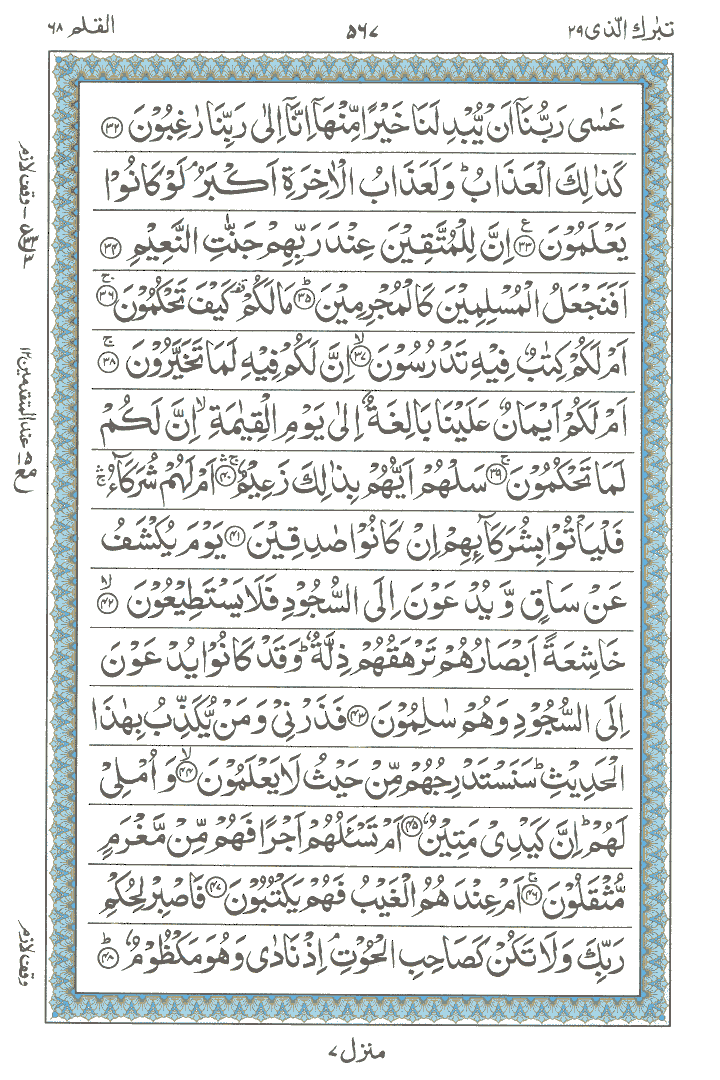 تبٰرك الّذی ٢٩
٥٦٧
القلم ٦٨
عَسٰى رَبُّنَاۤ اَنْ یُّبْدِلَنَا خَیْرًا مِّنْهَاۤ اِنَّاۤ اِلٰى رَبِّنَا رٰغِبُوْنَ ﴿٣٢﴾
كَذٰلِكَ الْعَذَابُ ؕ وَلَعَذَابُ الْاٰخِرَةِ اَكْبَرُ ۘ لَوْ كَانُوْا
یَعْلَمُوْنَ ﴿٣٣﴾ ع اِنَّ لِلْمُتَّقِیْنَ عِنْدَ رَبِّهِمْ جَنّٰتِ النَّعِیْمِ ﴿٣٤﴾
اَفَنَجْعَلُ الْمُسْلِمِیْنَ كَالْمُجْرِمِیْنَ ﴿٣٥﴾ؕ مَا لَكُمْ ۥ كَیْفَ تَحْكُمُوْنَ ﴿٣٦﴾ۚ
اَمْ لَكُمْ كِتٰبٌ فِیْهِ تَدْرُسُوْنَ ﴿٣٧﴾ۙ اِنَّ لَكُمْ فِیْهِ لَمَا تَخَیَّرُوْنَ ﴿٣٨﴾ۚ
اَمْ لَكُمْ اَیْمَانٌ عَلَیْنَا بَالِغَةٌ اِلٰى یَوْمِ الْقِیٰمَةِ ۙ اِنَّ لَكُمْ
لَمَا تَحْكُمُوْنَ ﴿٣٩﴾ۚ سَلْهُمْ اَیُّهُمْ بِذٰلِكَ زَعِیْمٌ ﴿٤٠﴾ۚۛ اَمْ لَهُمْ شُرَكَآءُ ۚۛ
فَلْیَاْتُوْا بِشُرَكَآىِٕهِمْ اِنْ كَانُوْا صٰدِقِیْنَ ﴿٤١﴾ یَوْمَ یُكْشَفُ
عَنْ سَاقٍ وَّیُدْعَوْنَ اِلَى السُّجُوْدِ فَلَا یَسْتَطِیْعُوْنَ ﴿٤٢﴾ۙ
خَاشِعَةً اَبْصَارُهُمْ تَرْهَقُهُمْ ذِلَّةٌ ؕ وَقَدْ كَانُوْا یُدْعَوْنَ
اِلَى السُّجُوْدِ وَهُمْ سٰلِمُوْنَ ﴿٤٣﴾ فَذَرْنِیْ وَمَنْ یُّكَذِّبُ بِهٰذَا
الْحَدِیْثِ ؕ سَنَسْتَدْرِجُهُمْ مِّنْ حَیْثُ لَا یَعْلَمُوْنَ ﴿٤٤﴾ۙ وَاُمْلِیْ
لَهُمْ ؕ اِنَّ كَیْدِیْ مَتِیْنٌ ﴿٤٥﴾ اَمْ تَسْـَٔلُهُمْ اَجْرًا فَهُمْ مِّنْ مَّغْرَمٍ
مُّثْقَلُوْنَ ﴿٤٦﴾ۚ اَمْ عِنْدَهُمُ الْغَیْبُ فَهُمْ یَكْتُبُوْنَ ﴿٤٧﴾ فَاصْبِرْ لِحُكْمِ
رَبِّكَ وَلَا تَكُنْ كَصَاحِبِ الْحُوْتِ ۘ اِذْ نَادٰى وَهُوَ مَكْظُوْمٌ ﴿٤٨﴾ؕ
وقف لازم
عند المتقدمین ١٢
وقف لازم
منزل ٧